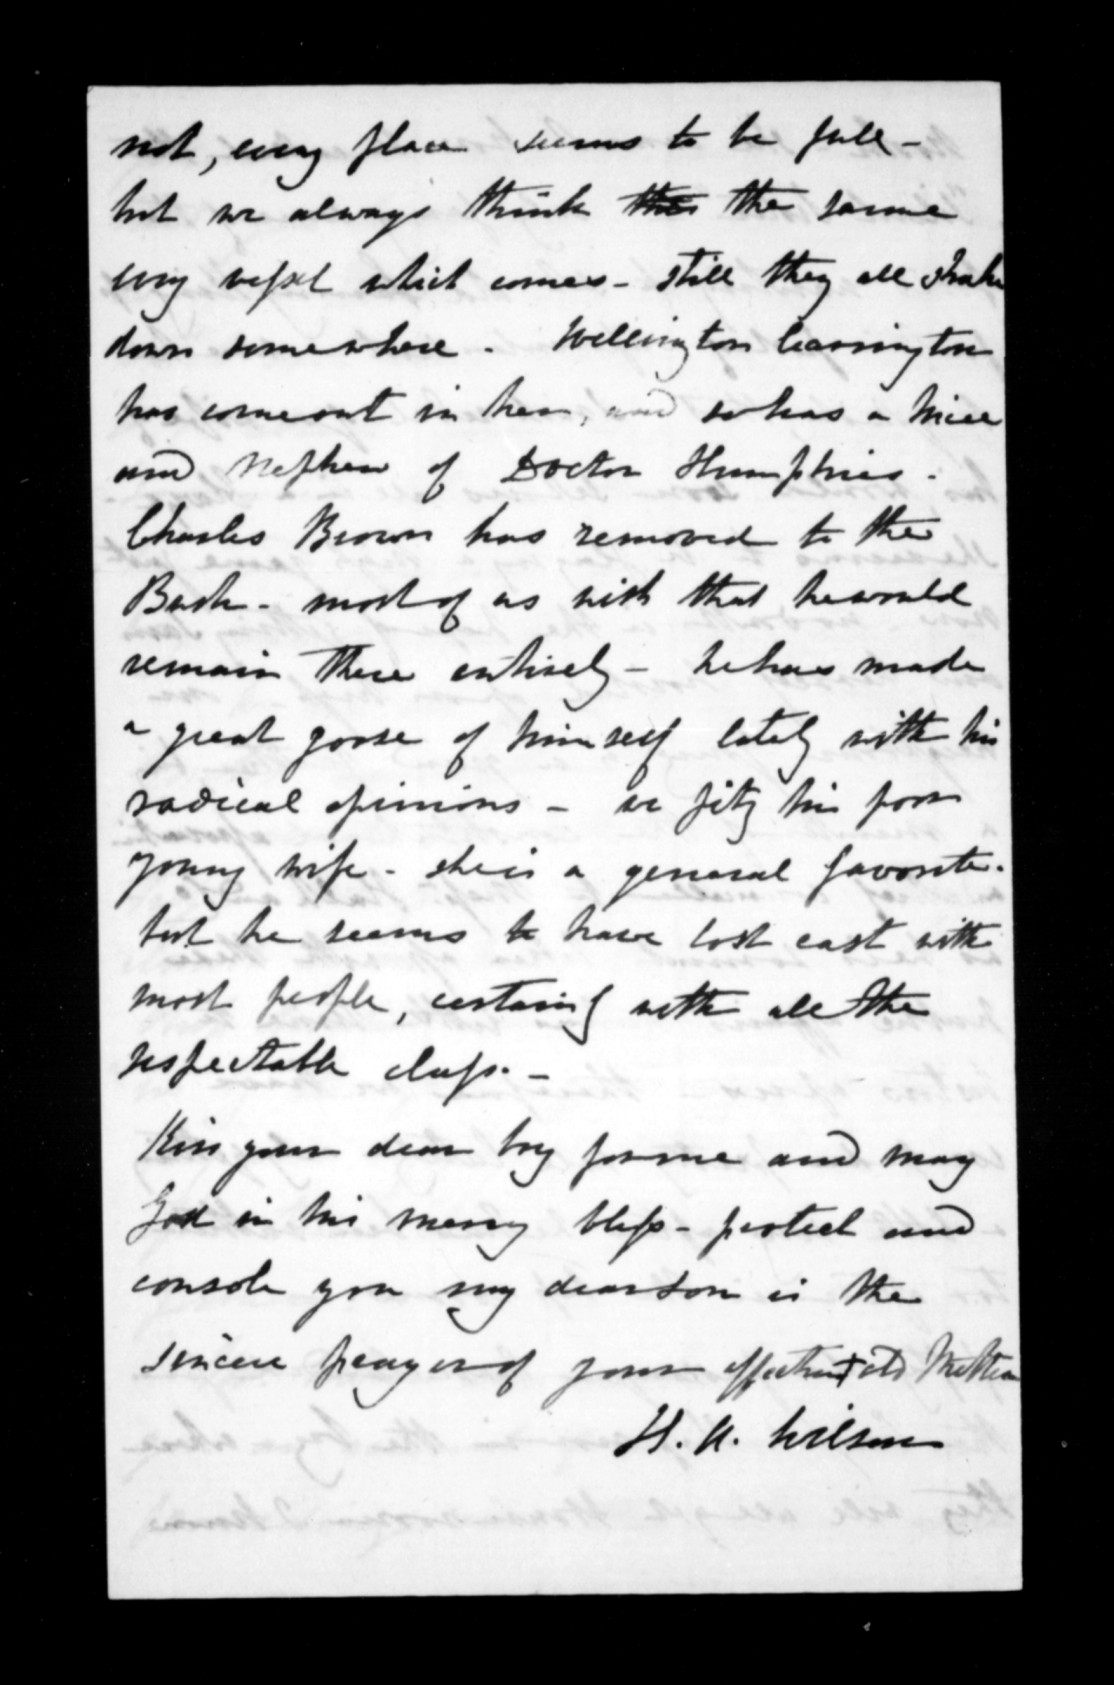 not, every place seems to be full -
but we always think ~~this~~ the same
every vessel which comes - still they all shake
down somewhere - Wellington Carrington
has come out in her, and so has a niece
and Nephew of Doctor Humphries -
Charles Brown has removed to the
Bush - most of us wish that he would
remain there entirely - he has made
a great goose of himself lately with his
radical opinions - we pity his poor
young wife - she is a general favorite -
but he seems to have lost cast with
most people, certainly with all the
respectable class. -
Kiss your dear boy for me and may
God in his mercy bless - protect and
console you my dear Son is the
sincere prayer of your affectionate old Mother
H. A. Wilson